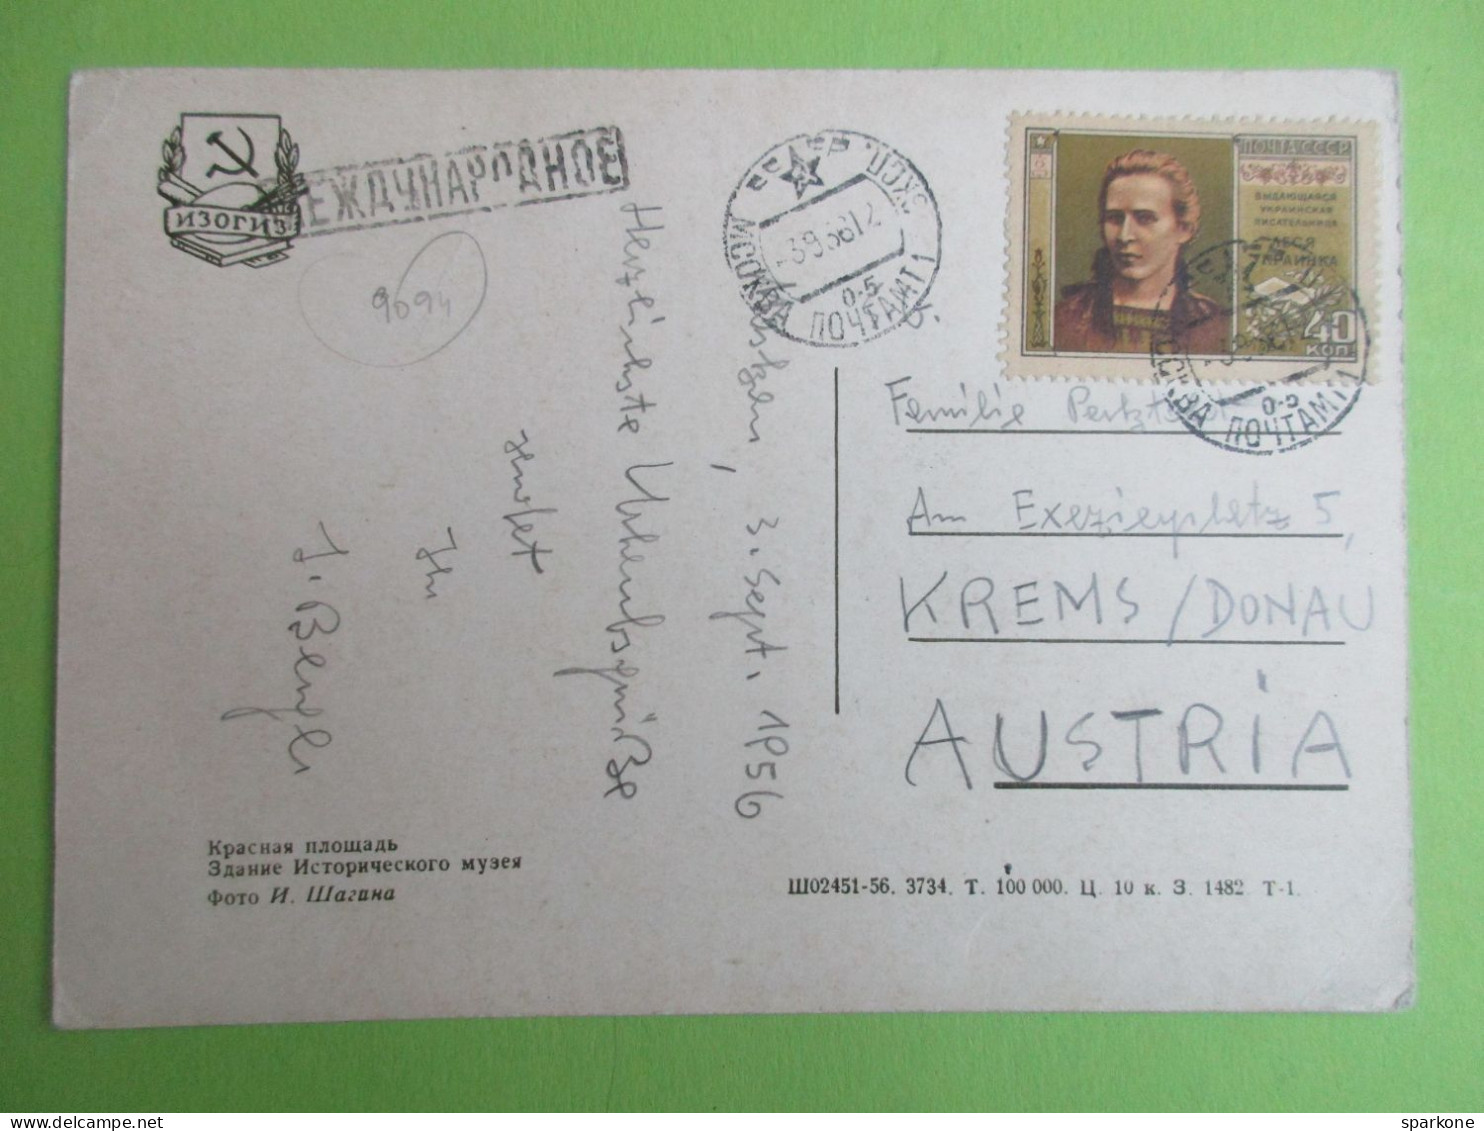 ИЗОГИЗ
МЕЖДУНАРОДНОЕ
9694
СССР
-3956 12
0-5
МОСКВА ПОЧТАМТ 1
ПОЧТА СССР
ВЫДАЮЩАЯСЯ
УКРАИНСКАЯ
ПИСАТЕЛЬНИЦА
ЛЕСЯ
УКРАИНКА
40
КОП.
0-5
МОСКВА ПОЧТАМТ 1
3. Sept. 1956
Herzlichste Urlaubsgrüße
sendet
Ihr
Familie
Am Exerzierplatz 5,
KREMS/DONAU
AUSTRIA
Красная площадь
Здание Исторического музея
Фото И. Шагина
Ш02451-56. 3734. Т. 100 000. Ц. 10 к. З. 1482. Т-1.
sparkone